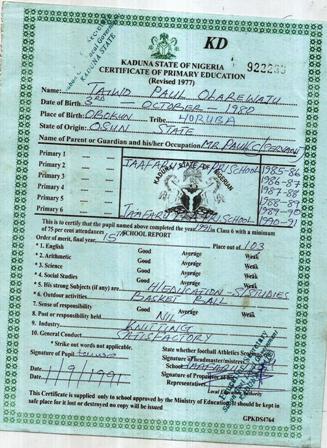 KD
KADUNA STATE OF NIGERIA
CERTIFICATE OF PRIMARY EDUCATION
(Revised 1977)
Name: TAIWO PAUL OLAREWAJU
Date of Birth: 3RD — OCTOBER — 1980
Place of Birth: OBOKUN Tribe: YORUBA
State of Origin: OSUN STATE
Name of Parent or Guardian and his/her Occupation MR PAUL
Primary 1 1985-86
Primary 2 1986-87
Primary 3 1987-88
Primary 4 1988-89
Primary 5 1989-90
Primary 6 SCHOOL 1990-91
This is to certify that pupil named above completed the year 1991 in Class 6 with a minimum
of 75 per cent attendances
SCHOOL REPORT
Order of merit, final year, 15TH Place out of 103
* 1. English Good Average Weak
* 2. Arithmetic Good Average Weak
* 3. Science Good Average Weak
* 4. Social Studies Good Average Weak
* 5. His strong Subjects (if any) are H/EDUCATION S/STUDIES
* 6. Outdoor activities, BASKET BALL
7. Sense of responsibility Good Average Weak
8. Post or responsibility held NIL
9. Industry KNITTING
10. General Conduct SATISFACTORY
* Strike out words not applicable.
State whether football Athletics
Signature of Pupil
Signature of headmaster/mistress
School
Signature of Proprietor
Representative
Date 1/9/1991
This Certificate is supplied only to school approved by the Ministry of Education. It should be kept in
safe place for it lost or destroyed no copy will be issued
GPKDS4764